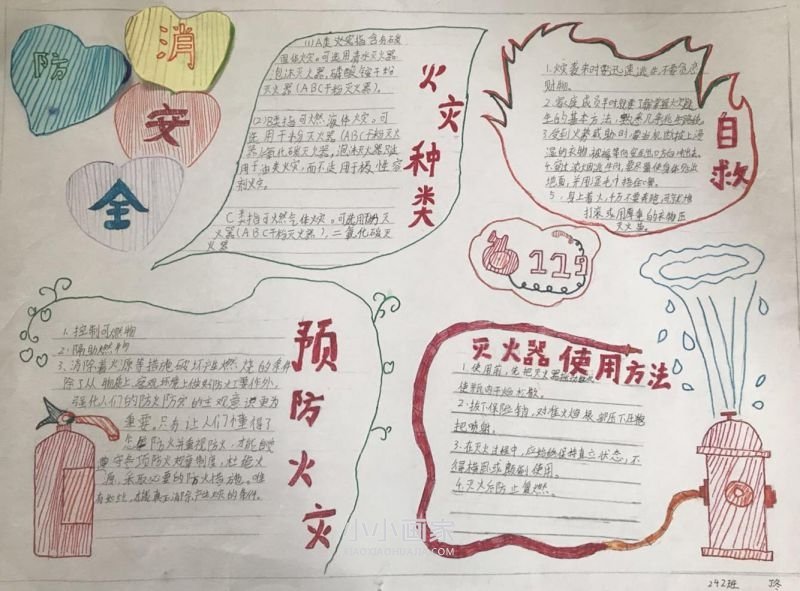 消
防
安
全
火灾种类
(1)A类火灾指含有碳
固体火灾。可选用清水灭火器
泡沫灭火器,磷酸铵干粉
灭火器(ABC干粉灭火器)。
(2)B类指可燃液体火灾。可
选用干粉灭火器(ABC干粉灭火
器)
用于油类火灾,而不适用于极性溶
剂火灾。
C类指可燃气体火灾。可选用干粉灭
火器(ABC干粉灭火器),二氧化碳灭
火器
自救
1.火灾袭来时要迅速逃生,不要贪恋
财物。
2.家庭成员平时就要了解掌握火灾逃
生的基本方法,熟悉几条逃生路线。
3.受到火势威胁时,要当机立断披上浸
湿的衣物,被褥等向安全出口方向冲出去。
4.穿过浓烟逃生时,要尽量使身体贴近
地面,并用湿毛巾捂住口鼻。
5.身上着火,千万不要奔跑,可就地
打滚或用厚重的衣物压
灭火苗。
119
预防火灾
1.控制可燃物
2.隔助燃物
3.消除着火源等措施破坏产生燃烧的条件
除了从物质上,客观环境上做好防火工作外,
强化人们的防火防灾的主观意识更为
重要。只有让人们懂得了
怎是防火并重视防火,才能自觉
遵守各项防火规章制度,杜绝火
源,采取必要的防火措施。唯
有如此,才能真正消除产生火灾的条件。
灭火器使用方法
1.使用前,先把灭火器
使瓶内干粉松散。
2.拔下保险销,对准火焰根部压下压把
把喷射。
3.在灭火过程中,应始终保持直立状态,不
得横卧或颠倒使用。
4.灭火后防止复燃。
小小画家
XIAOXIAOHUAJIA.COM
242班